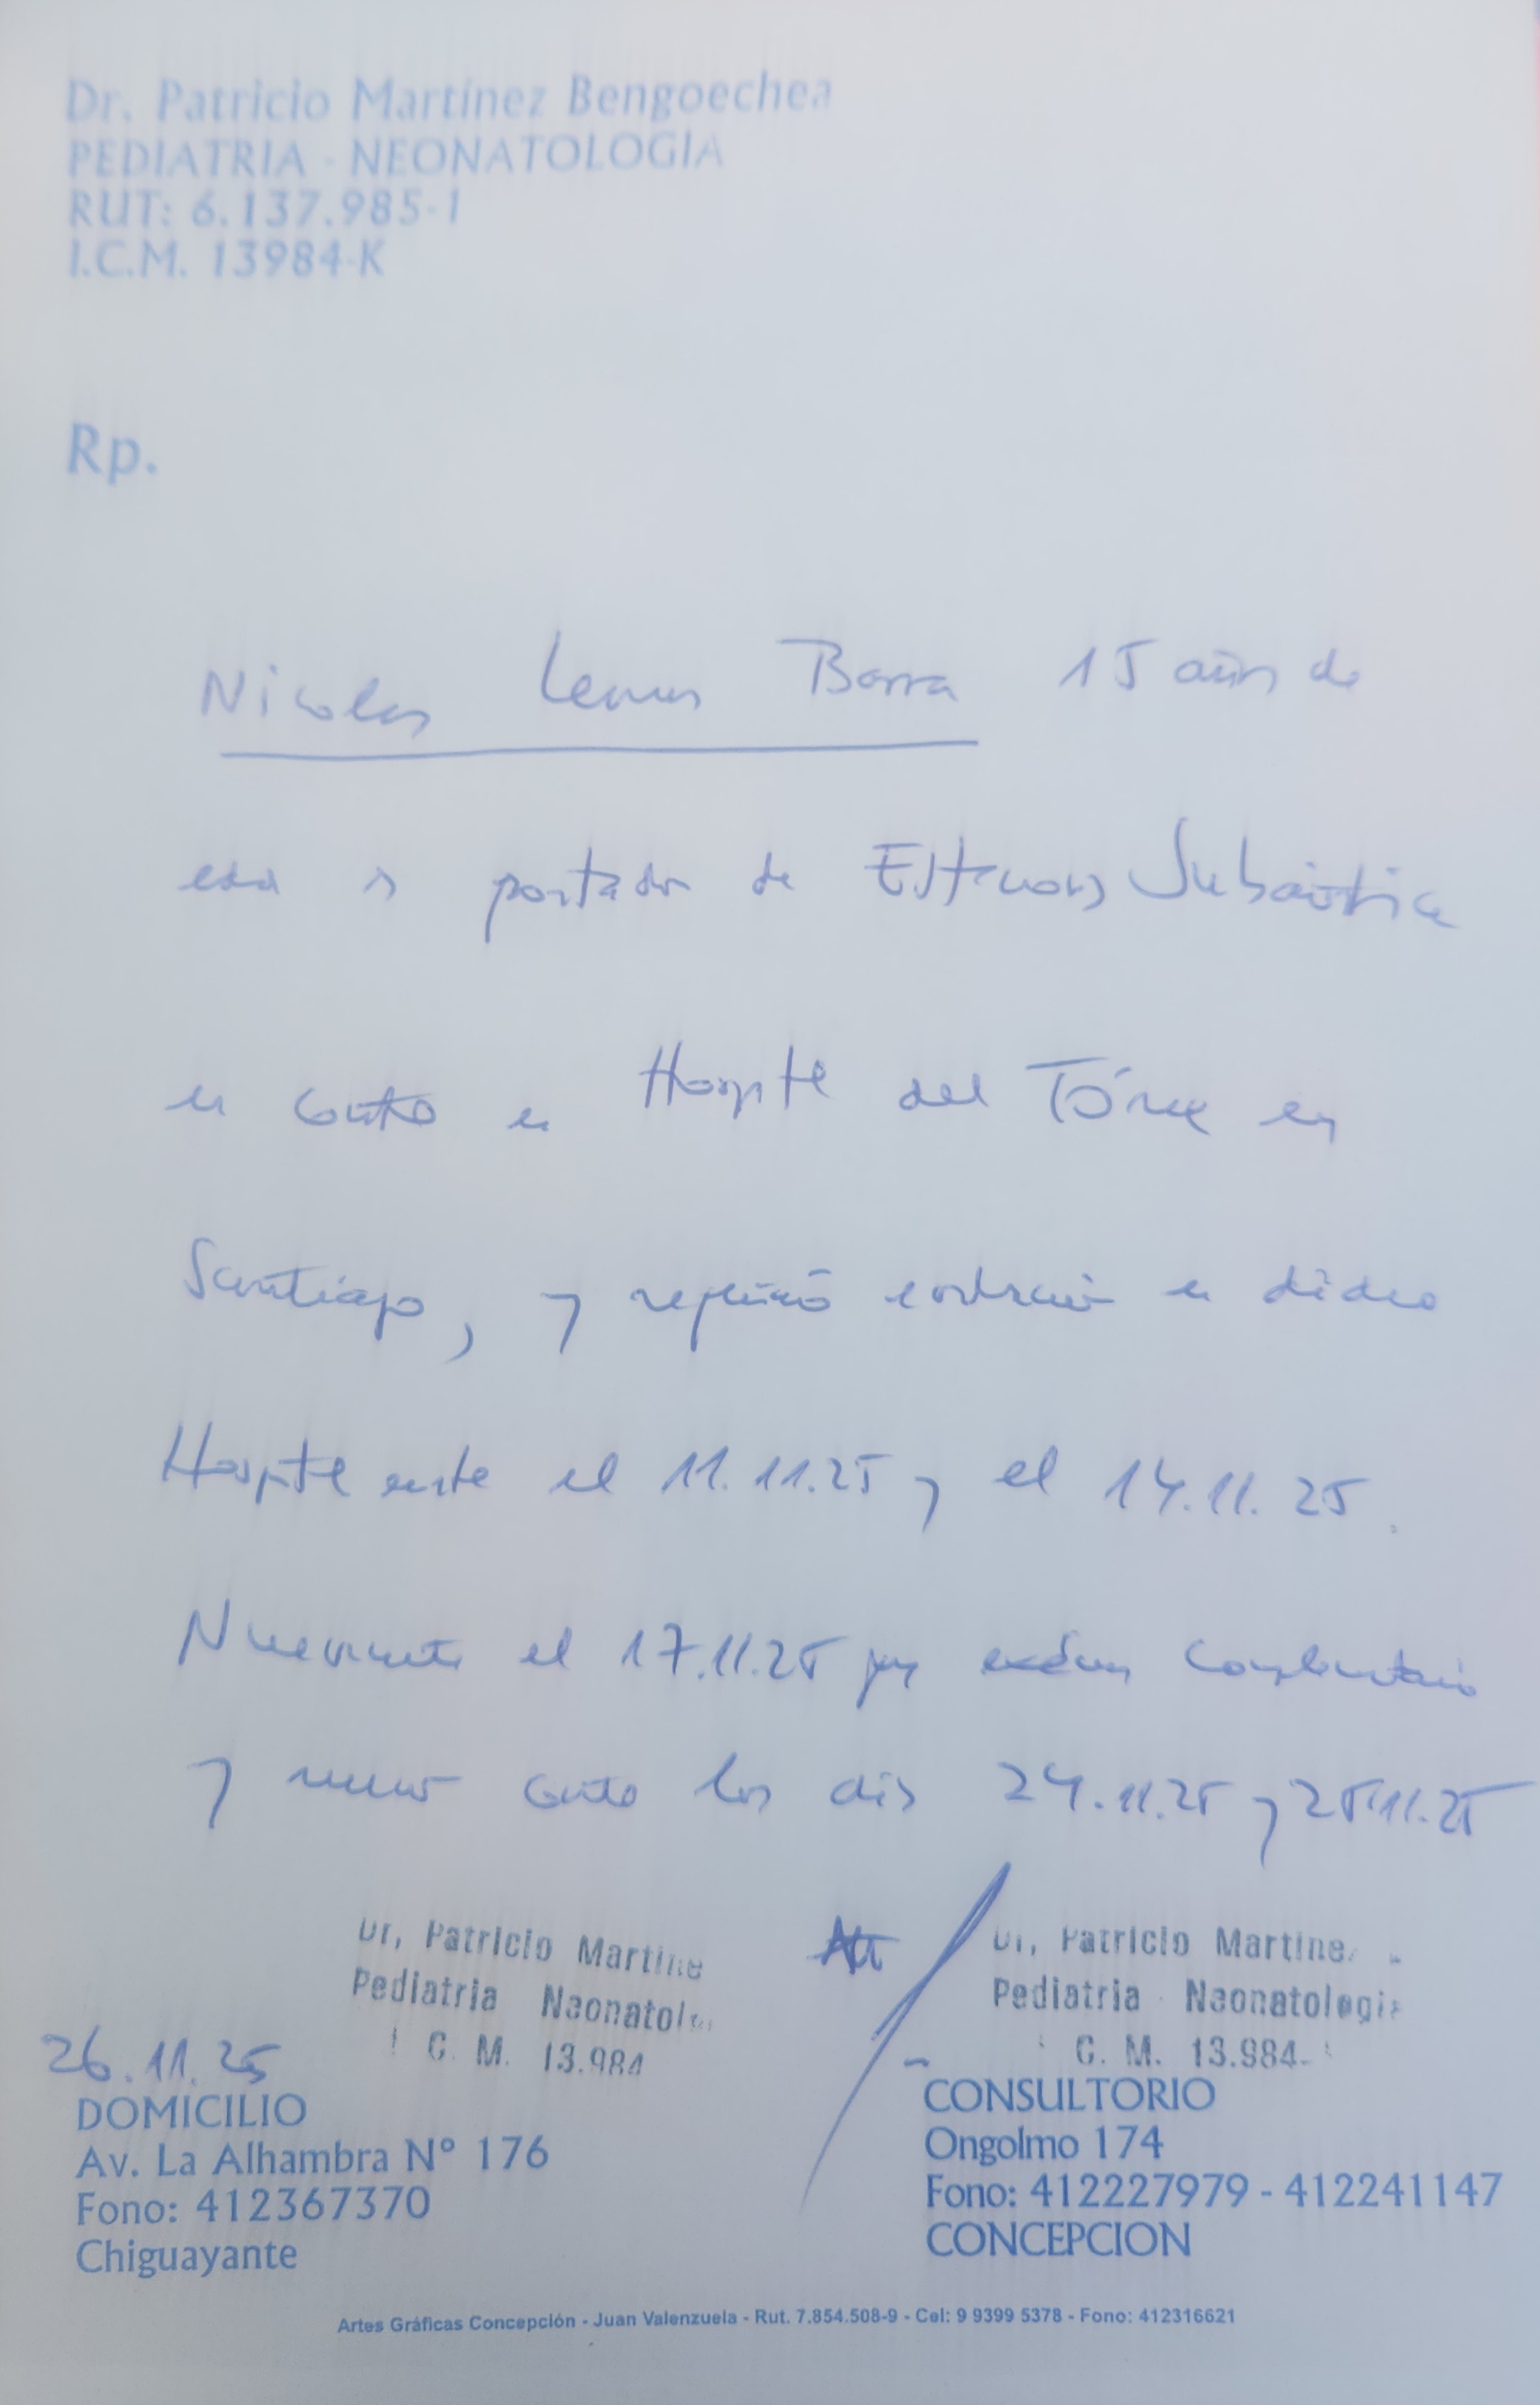 Dr. Patricio Martínez Bengoechea
PEDIATRIA - NEONATOLOGÍA
RUT: 6.137.985-1
I.C.M. 13984-K
Rp.
Nicolas Lemus Barra 15 años de
edad es portador de Estenosis Subaórtica
en control en Hospital del Tórax en
Santiago, y requirió evaluación en dicho
Hospital entre el 11.11.25 y el 14.11.25.
Nuevamente el 17.11.25 por exámen complementario
y nuevo control los días 24.11.25 y 25.11.25
Dr, Patricio Martine
Pediatria Neonatol
C. M. 13.984
Att
Dr, Patricio Martine
Pediatria - Neonatologia
C. M. 13.984-
26.11.25
DOMICILIO
Av. La Alhambra N° 176
Fono: 412367370
Chiguayante
CONSULTORIO
Ongolmo 174
Fono: 412227979 - 412241147
CONCEPCION
Artes Gráficas Concepción - Juan Valenzuela - Rut. 7.854.508-9 - Cel: 9 9399 5378 - Fono: 412316621